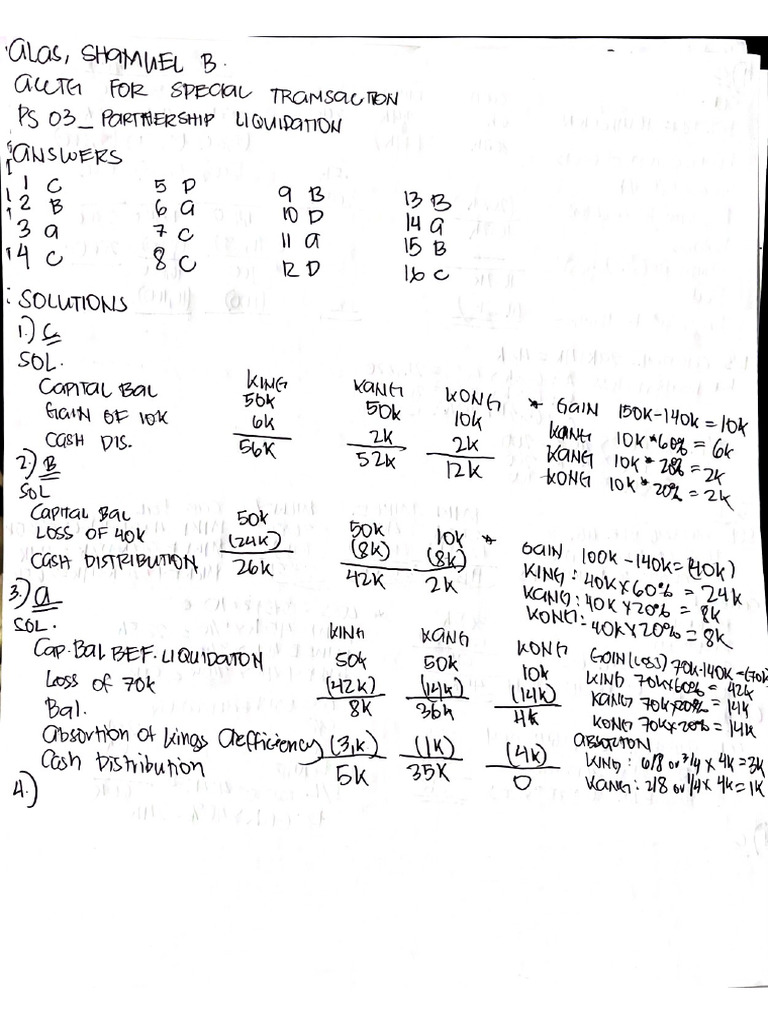 ALAS, SHAMUEL B.
ACCTG FOR SPECIAL TRANSACTION
PS 03_PARTNERSHIP LIQUIDATION
ANSWERS
1 C 5 D 9 B 13 B
2 B 6 A 10 D 14 A
3 A 7 C 11 A 15 B
4 C 8 C 12 D 16 C
SOLUTIONS
1.) C
SOL.
KING KANG KONG
CAPITAL BAL 50K 50K 10K * GAIN 150K-140K = 10K
GAIN OF 10K 6K 2K 2K KANG 10K*60% = 6K
CASH DIS. 56K 52K 12K KANG 10K*20% = 2K
KONG 10K*20% = 2K
2.) B
SOL
CAPITAL BAL 50K 50K 10K * GAIN 100K-140K=(40K)
LOSS OF 40K (24K) (8K) (8K) KING: 40K×60% = 24K
CASH DISTRIBUTION 26K 42K 2K KANG: 40K×20% = 8K
KONG: 40K×20% = 8K
3.) A
SOL.
KING KANG KONG
CAP. BAL BEF. LIQUIDATON 50K 50K 10K GAIN(LOSS) 70K-140K=(70K)
Loss of 70K (42K) (14K) (14K) KING 70K×60% = 42K
Bal. 8K 36K 4K KANG 70K×20% = 14K
KONG 70K×20% = 14K
Absortion of Kings Cefficiency (3K) (1K) (4K) ABSOTION
Cash Distribution 5K 35K 0 KING: 6/8 or 3/4 × 4K = 3K
KANG: 2/8 or 1/4 × 4K = 1K
4.)